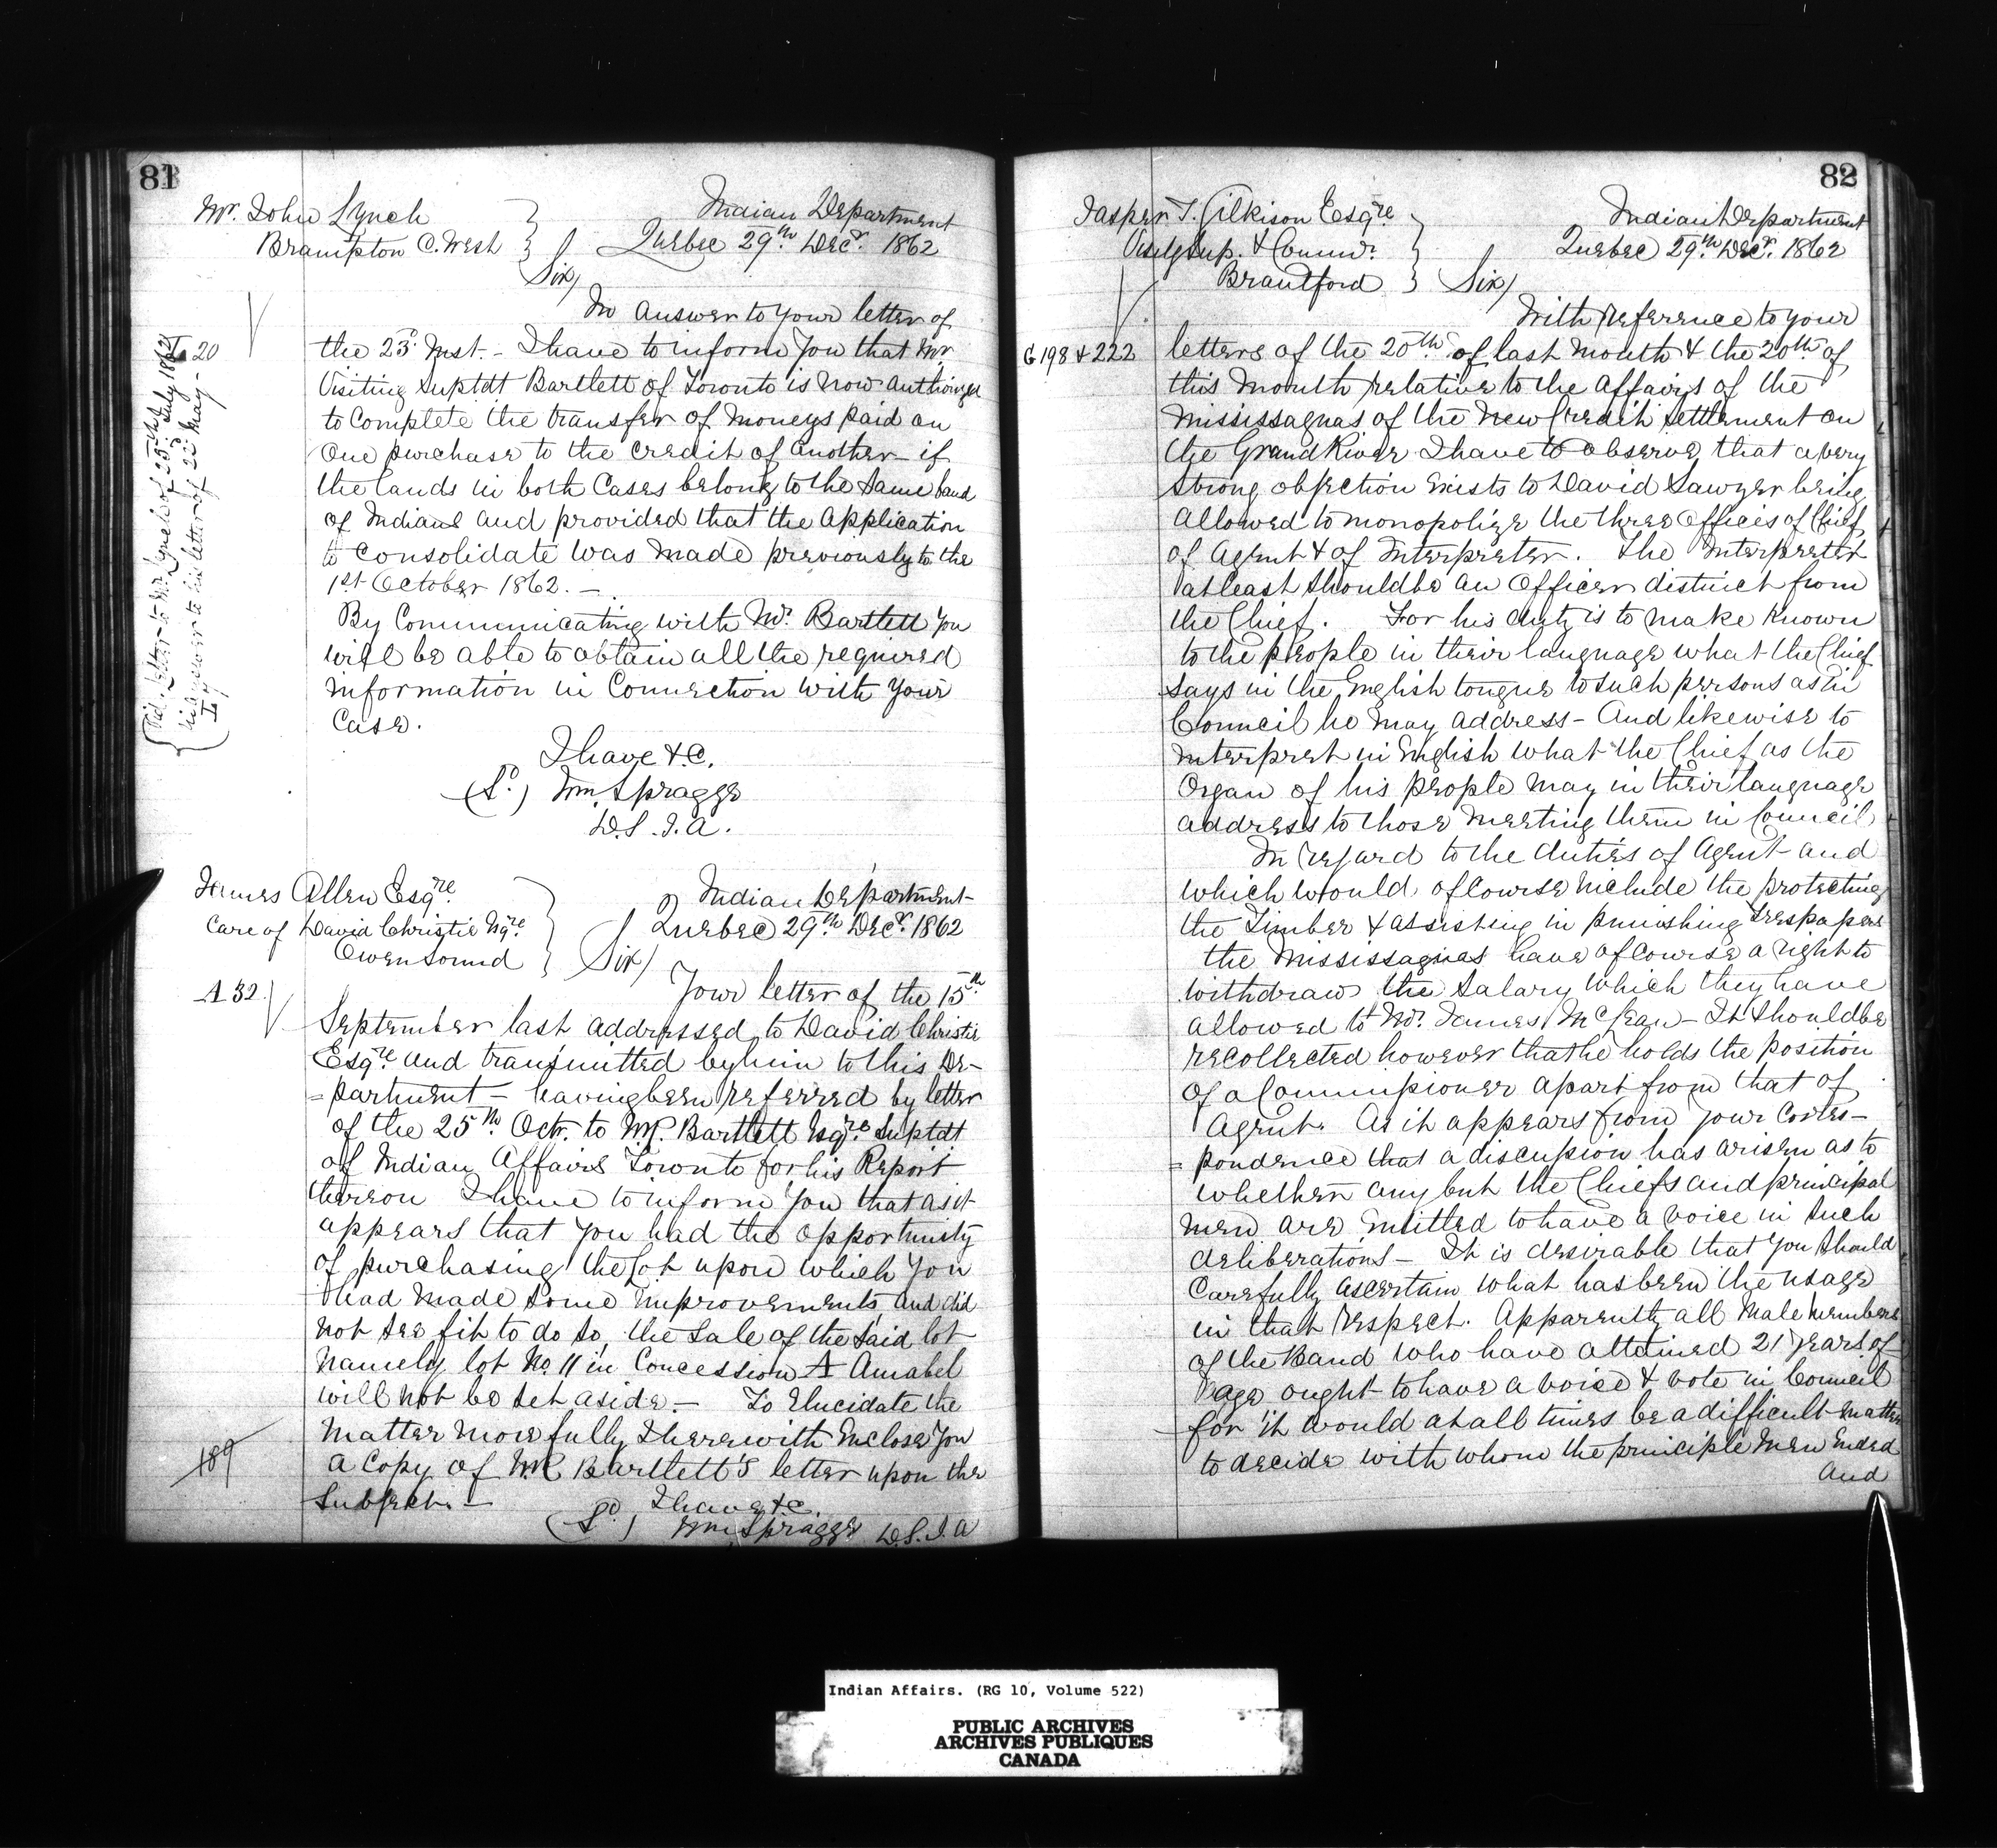 81
Mr. John Lynch
Brampton C. West
Indian Department
Quebec 29th Decr. 1862
Sir/
In answer to your letter of
the 23d Inst. - I have to inform you that Mr
Visiting Suptdt Bartlett of Toronto is now authorized
to complete the transfer of moneys paid on
one purchase to the credit of another - if
the lands in both cases belong to the same band
of Indians and provided that the application
to consolidate was made previously to the
1st October 1862. -
By Communicating with Mr. Bartlett you
will be able to obtain all the required
information in Connection with your
Case.
I have &c.
(Sd.) Wm Spragge
D.S.I.A.
L 20
Vid. letter to Mr Lynch of 25th July 1862
in answer to his letter of 22d May -
James Allen Esqre
Care of David Christie Esqre
Owen Sound
Indian Department
Quebec 29th Decr. 1862
Sir/
A 32.
Your letter of the 15th
September last addressed to David Christie
Esqre and transmitted by him to this De-
=partment - having been referred by letter
of the 25th Octr. to W.R. Bartlett Esqre Suptdt
of Indian Affairs Toronto for his Report
thereon I have to inform you that as it
appears that you had the opportunity
of purchasing the Lot upon which you
had made some improvements and did
not see fit to do so, the sale of the said lot
namely lot No. 11 in Concession A Amabel
will not be set aside. - To Elucidate the
matter more fully I herewith Enclose you
a Copy of W.R. Bartlett's letter upon the
Subject. -
189
I have &c.
(Sd.) Wm Spragge D.S.I.A
82
Jasper T. Gilkison Esqre
Visitg Sup. & Commr.
Brantford
Indian Department
Quebec 29th Decr. 1862
Sir/
With reference to your
G 198 & 222
letters of the 20th of last month & the 20th of
this month relative to the affairs of the
Mississaguas of the New Credit settlement on
the Grand River I have to observe, that a very
strong objection exists to David Sawyer being
allowed to monopolize the three offices of Chief,
of Agent & of Interpreter. The Interpreter
at least should be an Officer distinct from
the Chief. For his duty is to make known
to the people in their language what the Chief
says in the English tongue to such persons as in
Council he may address - And likewise to
interpret in English what the Chief as the
Organ of his people may in their language
address to those meeting them in Council.
In regard to the duties of Agent and
which would of course include the protecting
the Timber & assisting in punishing trespassers
the Mississaguas have of course a right to
withdraw the Salary which they have
allowed to Mr. James McLean - It should be
recollected however that he holds the position
of a Commissioner apart from that of
Agent. As it appears from your Corres-
=pondence that a discussion has arisen as to
whether any but the Chiefs and principal
men are entitled to have a voice in such
deliberations - It is desirable that you should
Carefully ascertain what has been the usage
in that respect. Apparently all male members
of the Band who have attained 21 years of
age ought to have a voice & vote in Council
for it would at all times be a difficult matter
to decide with whom the principle men Ended
and
Indian Affairs. (RG 10, Volume 522)
PUBLIC ARCHIVES
ARCHIVES PUBLIQUES
CANADA